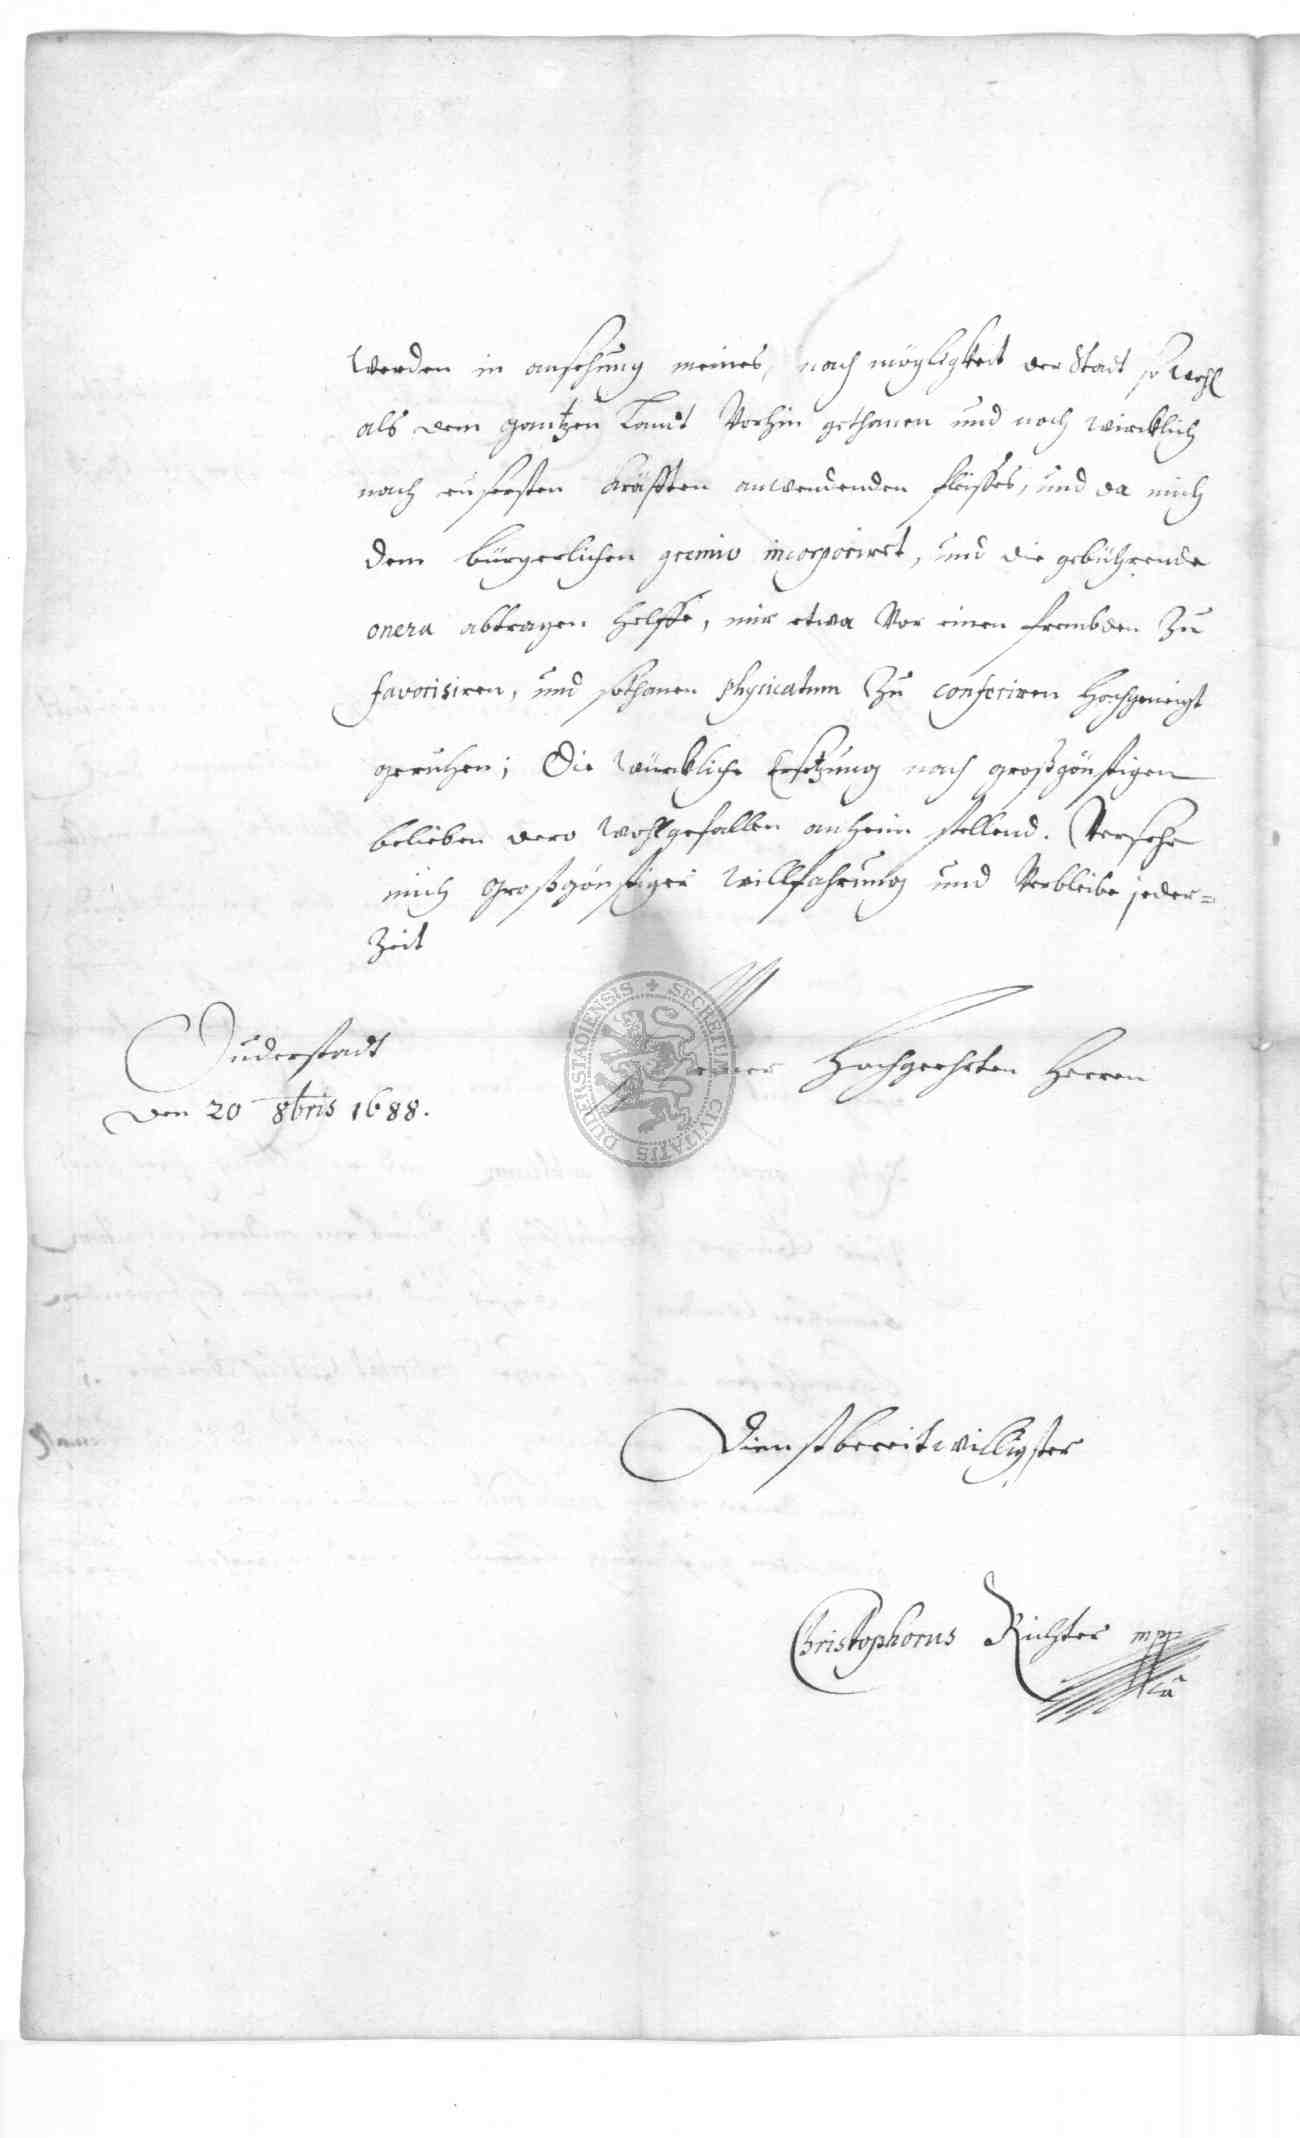 werden in ansehung meines, nach mögligkeit der Stadt so wohl
als dem gantzen Landt Vorhin gethanen und noch wircklich
nach eusersten kräfften anwendenden fleisses, und da mich
dem bürgerlichen gremio incorporiret, und die gebührende
onera abtragen helffe, mir etwa Vor einen frembden Zu
favorisiren, und sothanen physicatum Zu conferiren Hochgeneigt
geruhen; Die würckliche Ersetzung nach großgönstigen
belieben dero wohlgefallen anheim stellend. Versehe
mich großgönstiger willfahrung und Verbleibe jeder=
Zeit
Meiner Hochgeehrten Herren
Duderstadt
den 20 8bris 1688.
Dienstbereitwilligster
Christophorus Richter mpp
ia
SECRETUM CIVITATIS DUDERSTADIENSIS